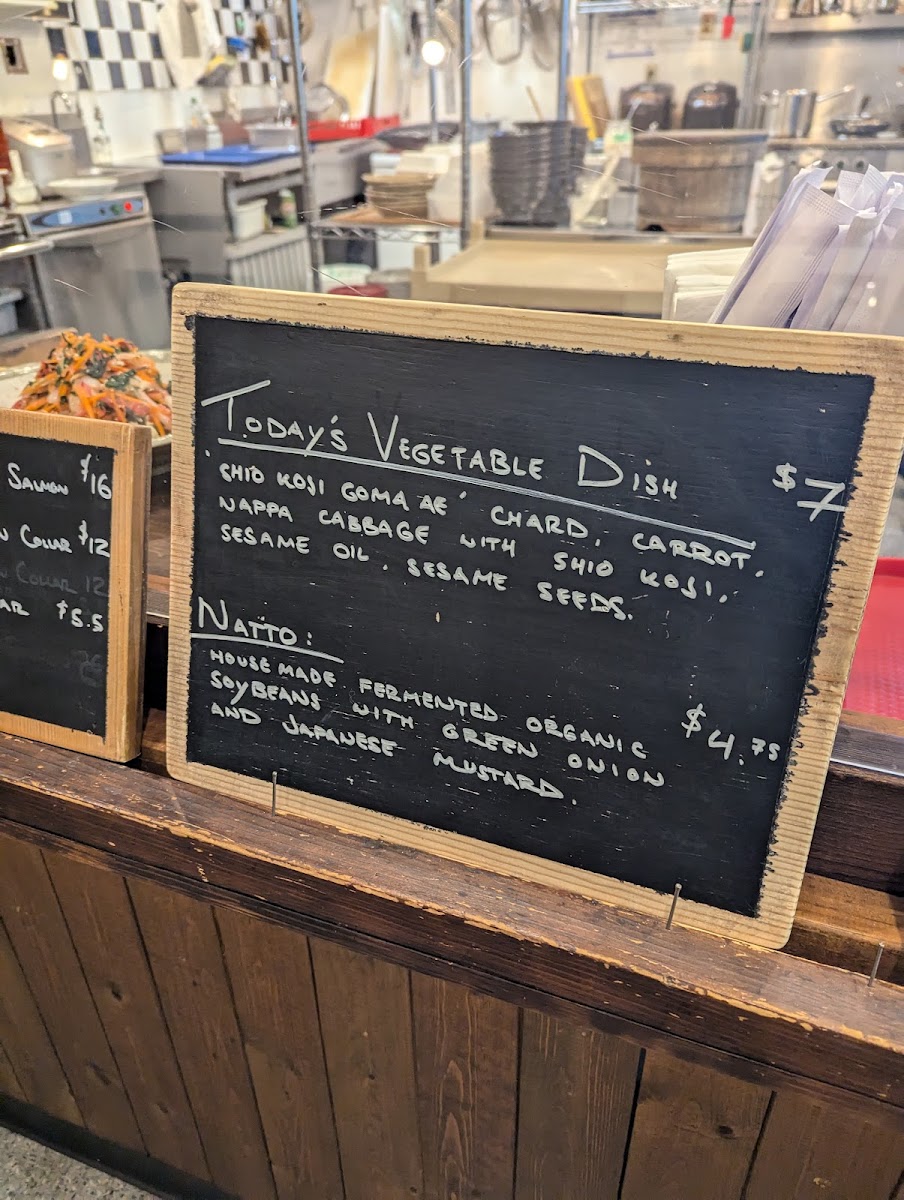 Today's Vegetable Dish $7
'SHIO KOJI GOMA AE' CHARD, CARROT.
NAPPA CABBAGE WITH SHIO KOJI.
SESAME OIL. SESAME SEEDS.
NATTO:
HOUSE MADE FERMENTED ORGANIC
SOYBEANS WITH GREEN ONION $4.75
AND JAPANESE MUSTARD.
SALMON $16
COLLAR $12
COLLAR 12
$5.5